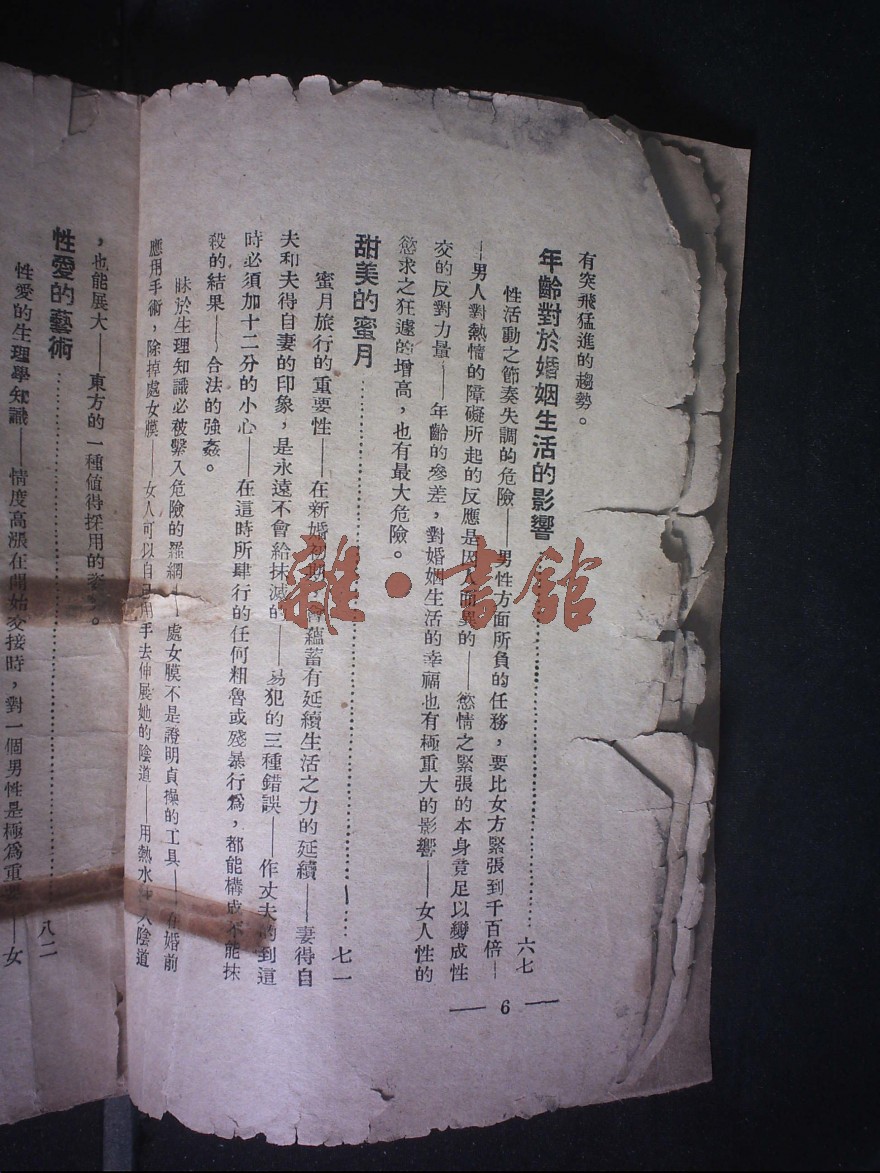 有突飛猛進的趨勢。
年齡對於婚姻生活的影響………………六七
性活動之節奏失調的危險——男性方面所負的任務，要比女方緊張到千百倍—
—男人對熱情的障礙所起的反應是因人而異的——慾情之緊張的本身竟足以變成性
交的反對力量——年齡的參差，對婚姻生活的幸福也有極重大的影響——女人性的
慾求之狂遽的增高，也有最大危險。
甜美的蜜月………………七一
蜜月旅行的重要性——在新婚初期 蘊蓄有延續生活之力的延續——妻得自
夫和夫得自妻的印象，是永遠不會給抹滅的——易犯的三種錯誤——作丈夫的到這
時必須加十二分的小心——在這時所肆行的任何粗魯或殘暴行為，都能構成不能抹
殺的結果——合法的強姦。
昧於生理知識必被繫入危險的羅網——處女膜不是證明貞操的工具——在婚前
應用手術，除掉處女膜——女人可以自己用手去伸展她的陰道——用熱水 入陰道
，也能展大——東方的一種值得採用的 。
性愛的藝術………………八二
性愛的生理學知識——情度高漲在開始交接時，對一個男性是極為重 ——女
— 6 —
雜·書館